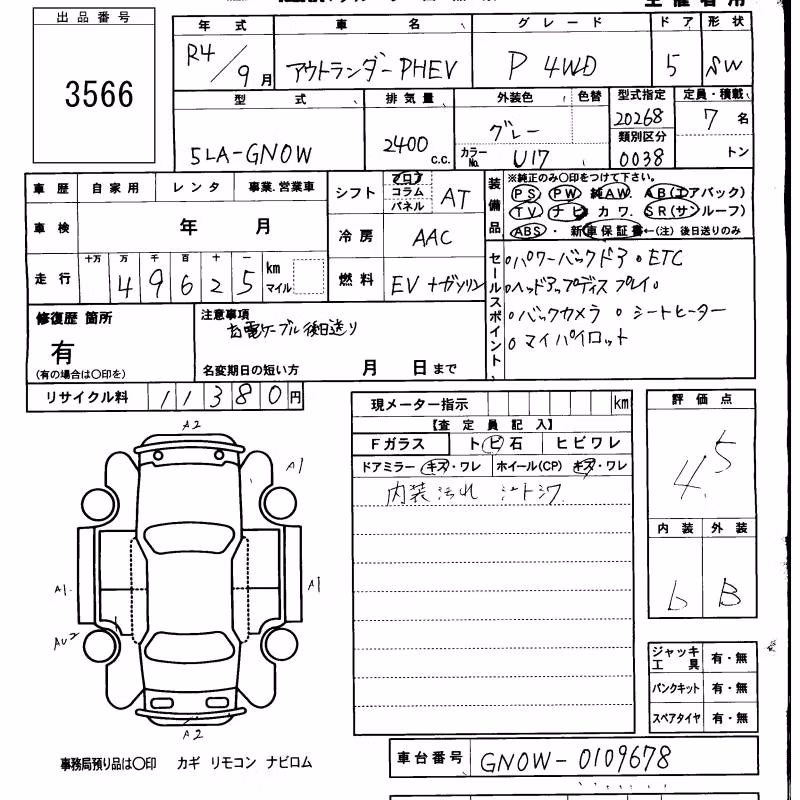 出品番号
3566
年式 車名 グレード ドア 形状
R4/9月 アウトランダーPHEV P 4WD 5 SW
型式 排気量 外装色 色替 型式指定 定員・積載
5LA-GN0W 2400 c.c. グレー 20268 7 名
カラーNo. U17 類別区分 0038 トン
車歴 自家用 レンタ 事業.営業車
シフト フロア コラム パネル AT
装備品
※純正のみ○印をつけて下さい。
PS PW 純AW. AB(エアバック)
TV ナビ カワ. SR(サンルーフ)
ABS・新車保証書←(注)後日送りのみ
車検 年 月
冷房 AAC
走行 十万 万 千 百 十 一
49625 km マイル
燃料 EV+ガソリン
セールスポイント
○パワーバックドア○ETC
○ヘッドアップディスプレイ○
○バックカメラ ○シートヒーター
○マイパイロット
修復歴 箇所
有
(有の場合は○印を)
注意事項
充電ケーブル後日送り
名変期日の短い方 月 日まで
リサイクル料 11380円
現メーター指示 km
【査定員記入】
Fガラス トビ石 ヒビワレ
ドアミラー キズ・ワレ ホイール(CP) キズ・ワレ
内装汚れ シートシワ
評価点
4.5
内装 外装
b B
A2
A1
A1
A1
AU2
A2
ジャッキ 工具 有・無
パンクキット 有・無
スペアタイヤ 有・無
事務局預り品は○印 カギ リモコン ナビロム
車台番号 GN0W-0109678